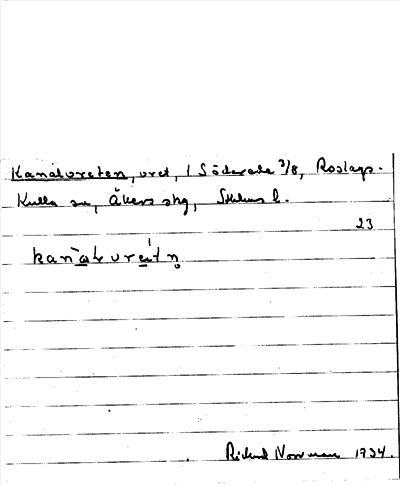 Kanalvreten, vret, 1 Söderede 3/8, Roslags-
Kulla sn, Åkers skg, Sthlms l.
23
kanalvretn̥
Rickard Norrman 1934.